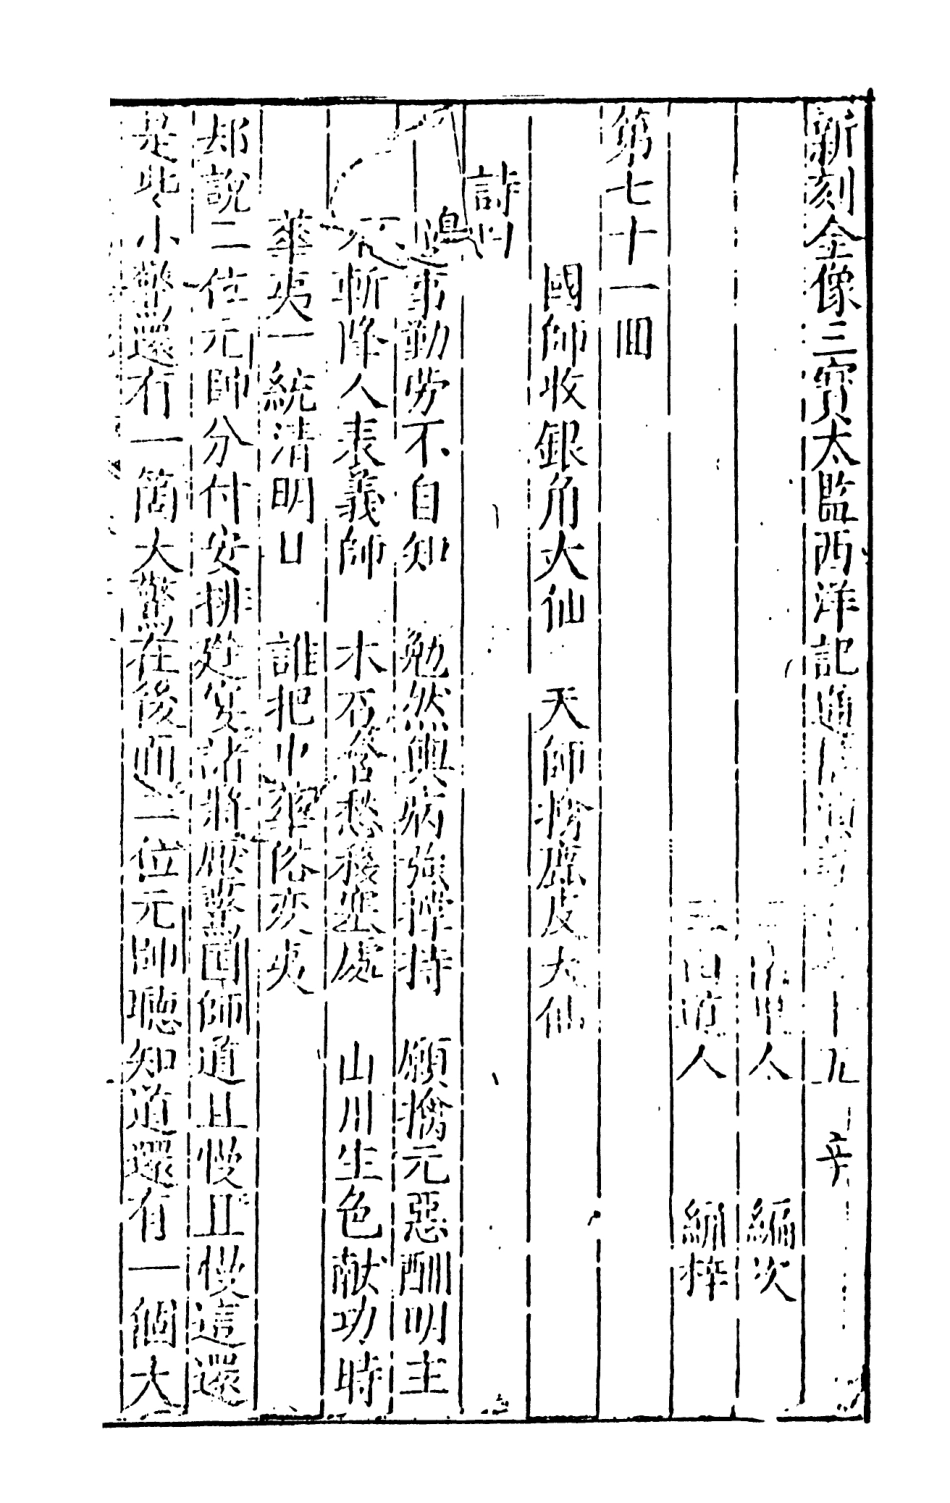 新刻全像三寶太監西洋記通俗演義 十五 辛
里人 編次
三山道人 綉梓
第七十一囬
國師收銀角大仙 天師擒鹿皮大仙
詩曰
邊事勤勞不自知 勉然輿病強撑持 願擒元惡酬明主
不斬降人表義師 木石含愁移塞處 山川生色献功時
華夷一統清明日 誰把中華俗変夷
却說二位元帥分付安排筵宴諸將壓驚囯師道且慢且慢這還
是些小驚還有一箇大驚在後面二位元帥聴知道還有一個大